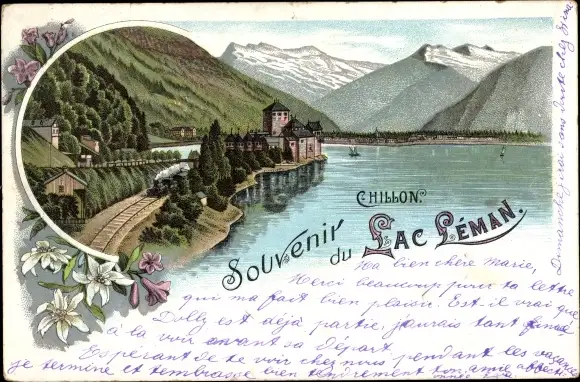 CHILLON.
Souvenir du Lac Léman.
Ma bien chère Marie,
Merci beaucoup pour ta lettre
qui m'a fait bien plaisir. Est-il vrai que
Dolly est déjà partie, j'aurais tant aimé
à la voir avant son départ.
Espérant de te voir chez nous pendant les vacances
je termine et t'embrasse bien tendrement ton amie
Dimanche j'irai sans doute chez